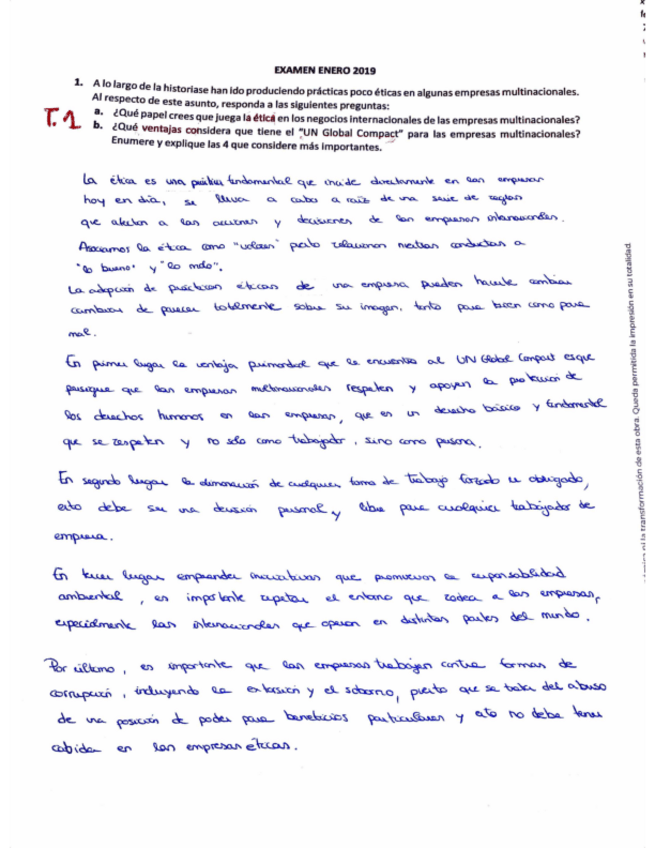 EXAMEN ENERO 2019
1. A lo largo de la historiase han ido produciendo prácticas poco éticas en algunas empresas multinacionales.
Al respecto de este asunto, responda a las siguientes preguntas:
T.1
a. ¿Qué papel crees que juega la ética en los negocios internacionales de las empresas multinacionales?
b. ¿Qué ventajas considera que tiene el "UN Global Compact" para las empresas multinacionales?
Enumere y explique las 4 que considere más importantes.
La ética es una práctica fundamental que incide directamente en las empresas
hoy en día, se lleva a cabo a raíz de una serie de reglas
que afectan a las acciones y decisiones de las empresas internacionales.
Asociamos la ética como "valores" pero relacionan nuestras conductas a
"lo bueno" y "lo malo".
La adopción de prácticas éticas de una empresa pueden hacerle cambiar
cambiar de parecer totalmente sobre su imagen, tanto para bien como para
mal.
En primer lugar la ventaja primordial que le encuentro al UN Global Compact es que
persigue que las empresas multinacionales respeten y apoyen la protección de
los derechos humanos en las empresas, que es un derecho básico y fundamental
que se respeten y no solo como trabajador, sino como persona.
En segundo lugar la eliminación de cualquier forma de trabajo forzado u obligado,
esto debe ser una decisión personal y libre para cualquier trabajador de
empresa.
En tercer lugar emprender iniciativas que promuevan la responsabilidad
ambiental, es importante respetar el entorno que rodea a las empresas,
especialmente las internacionales que operan en distintas partes del mundo.
Por último, es importante que las empresas trabajen contra formas de
corrupción, incluyendo la extorsión y el soborno, puesto que se trata del abuso
de una posición de poder para beneficios particulares y esto no debe tener
cabida en las empresas éticas.
ni la transformación de esta obra. Queda permitida la impresión en su totalidad.